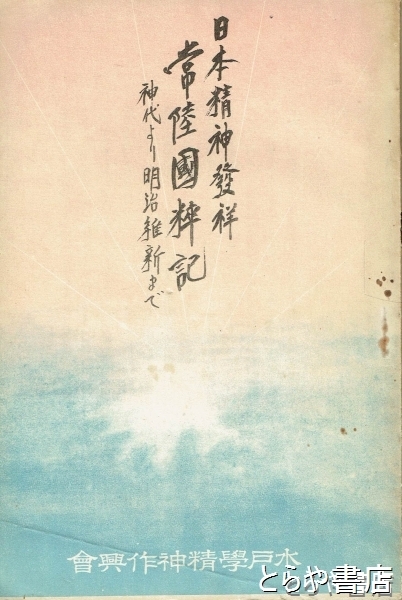 日本精神發祥
常陸國粹記
神代より明治維新まで
水戸學精神作興會
とらや書店